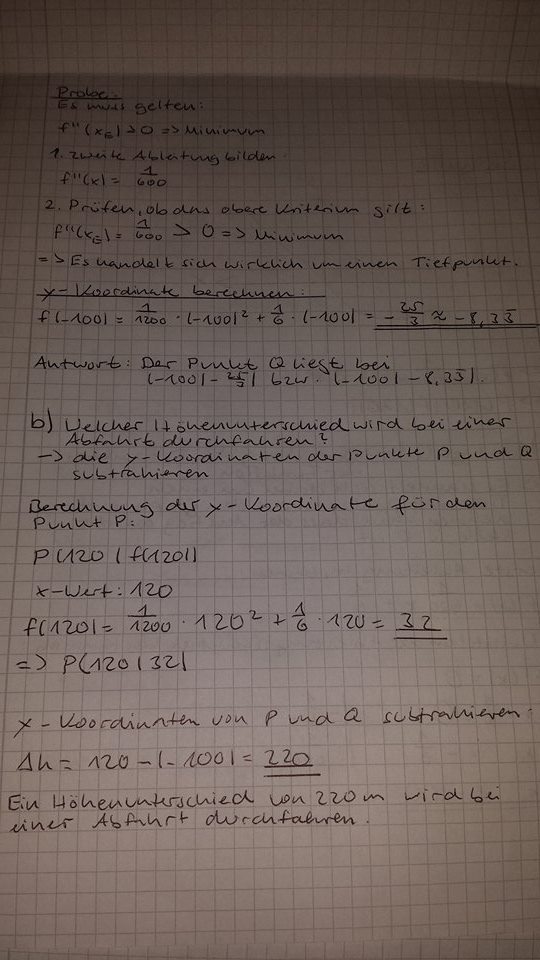 Probe:
Es muss gelten:
f''(x_E) > 0 => Minimum
1. zweite Ableitung bilden
f''(x) = 1/600
2. Prüfen, ob das obere Kriterium gilt:
f''(x_E) = 1/600 > 0 => Minimum
=> Es handelt sich wirklich um einen Tiefpunkt.
y-Koordinate berechnen:
f(-100) = 1/1200 · (-100)² + 1/6 · (-100) = -25/3 ≈ -8,33
Antwort: Der Punkt Q liegt bei
(-100|-25/3) bzw. (-100|-8,33).
b) Welcher Höhenunterschied wird bei einer
Abfahrt durchfahren?
-> die y-Koordinaten der Punkte P und Q
subtrahieren
Berechnung der y-Koordinate für den
Punkt P:
P(120|f(120))
x-Wert: 120
f(120) = 1/1200 · 120² + 1/6 · 120 = 32
=> P(120|32)
x-Koordinaten von P und Q subtrahieren:
Δh = 120 - (-100) = 220
Ein Höhenunterschied von 220 m wird bei
einer Abfahrt durchfahren.